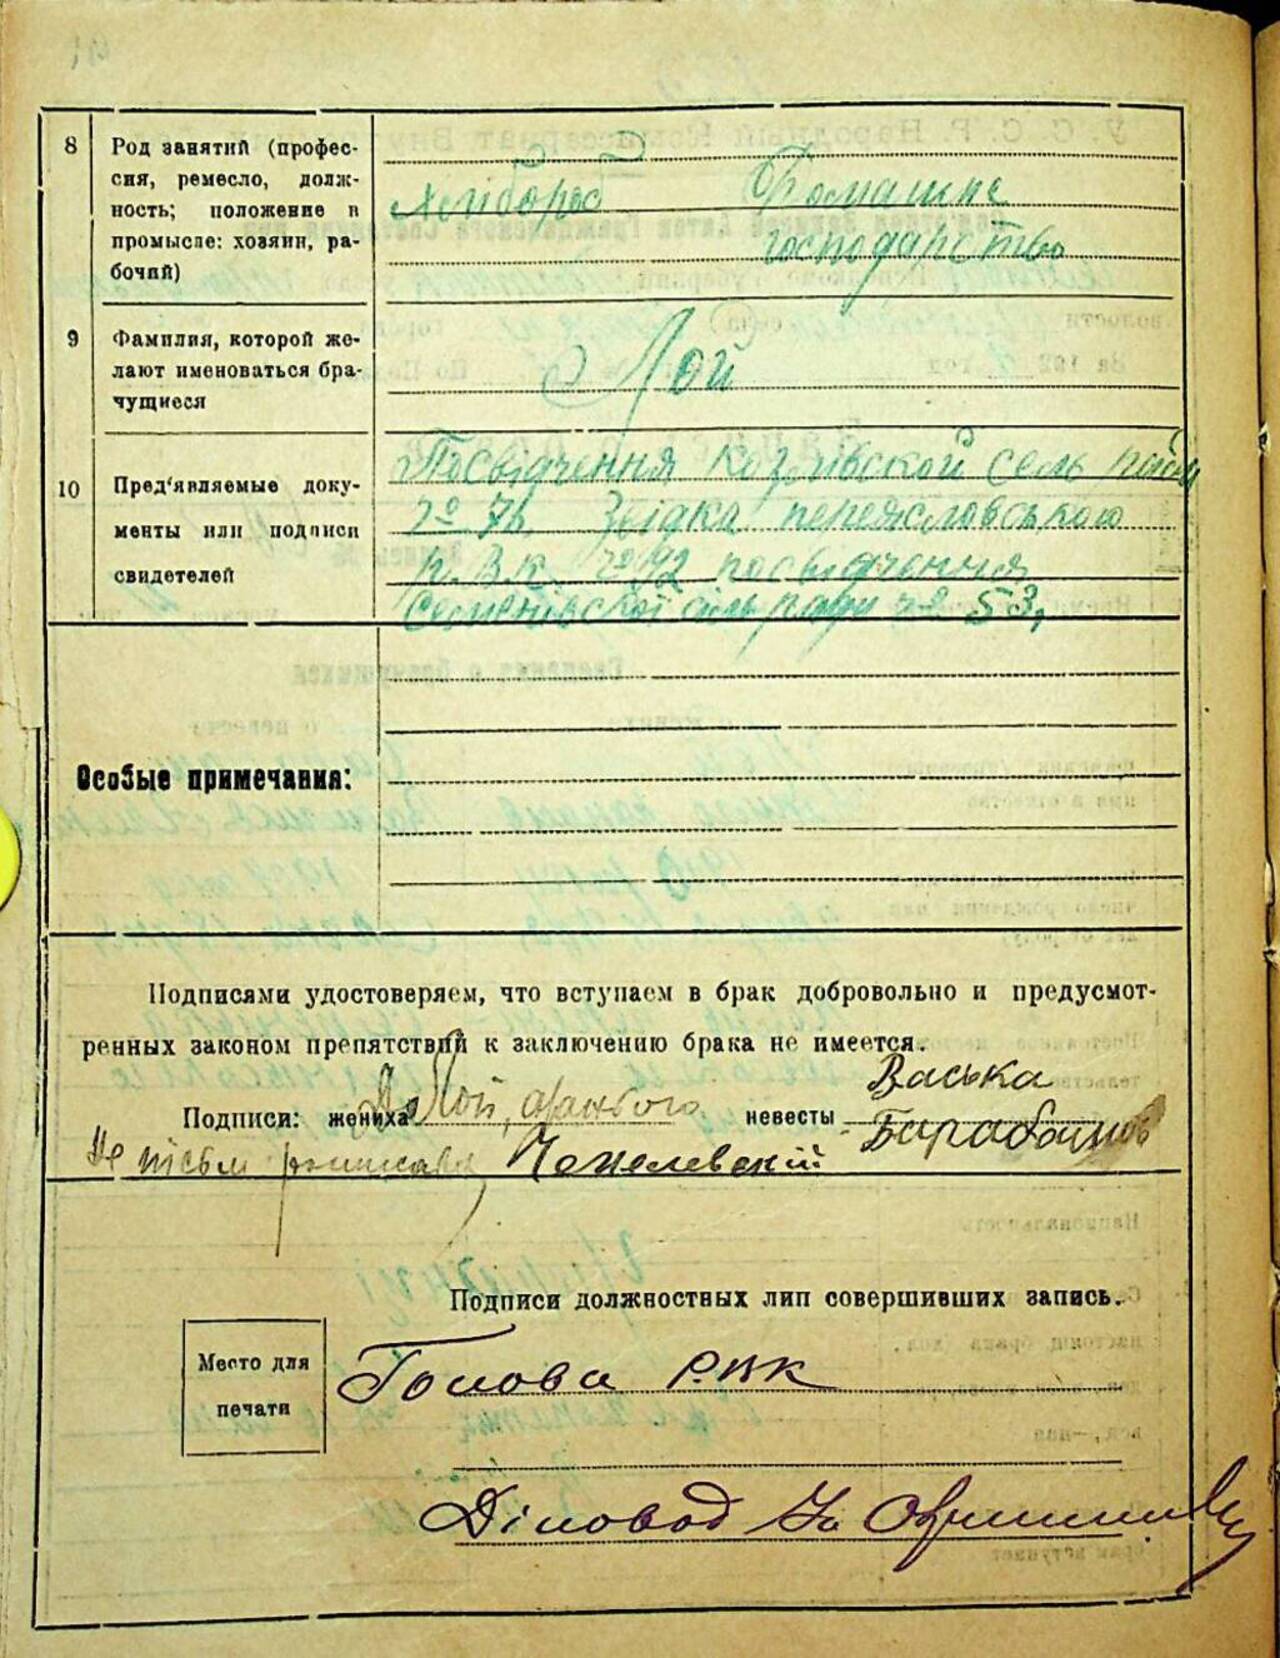 8
Род занятий (профес-
сия, ремесло, долж-
ность; положение в
промысле: хозяин, ра-
бочий)
Хлібороб Домашнє
господарство
9
Фамилия, которой же-
лают именоваться бра-
чущиеся
Лой
10
Пред'являемые доку-
менты или подписи
свидетелей
Посвідчення Козлівской сель ради
№ 76. Звідка переясловського
Р.В.К. № 92 посвідчення
Семенівської сільради № 53,
Особые примечания:
Подписями удостоверяем, что вступаем в брак добровольно и предусмот-
ренных законом препятствий к заключению брака не имеется.
Подписи: жениха Лой, невесты Васька
Барабашов
Не письм росписавсь
Подписи должностных лип совершивших запись.
Место для
печати
Голова Р.В.К
Діловод